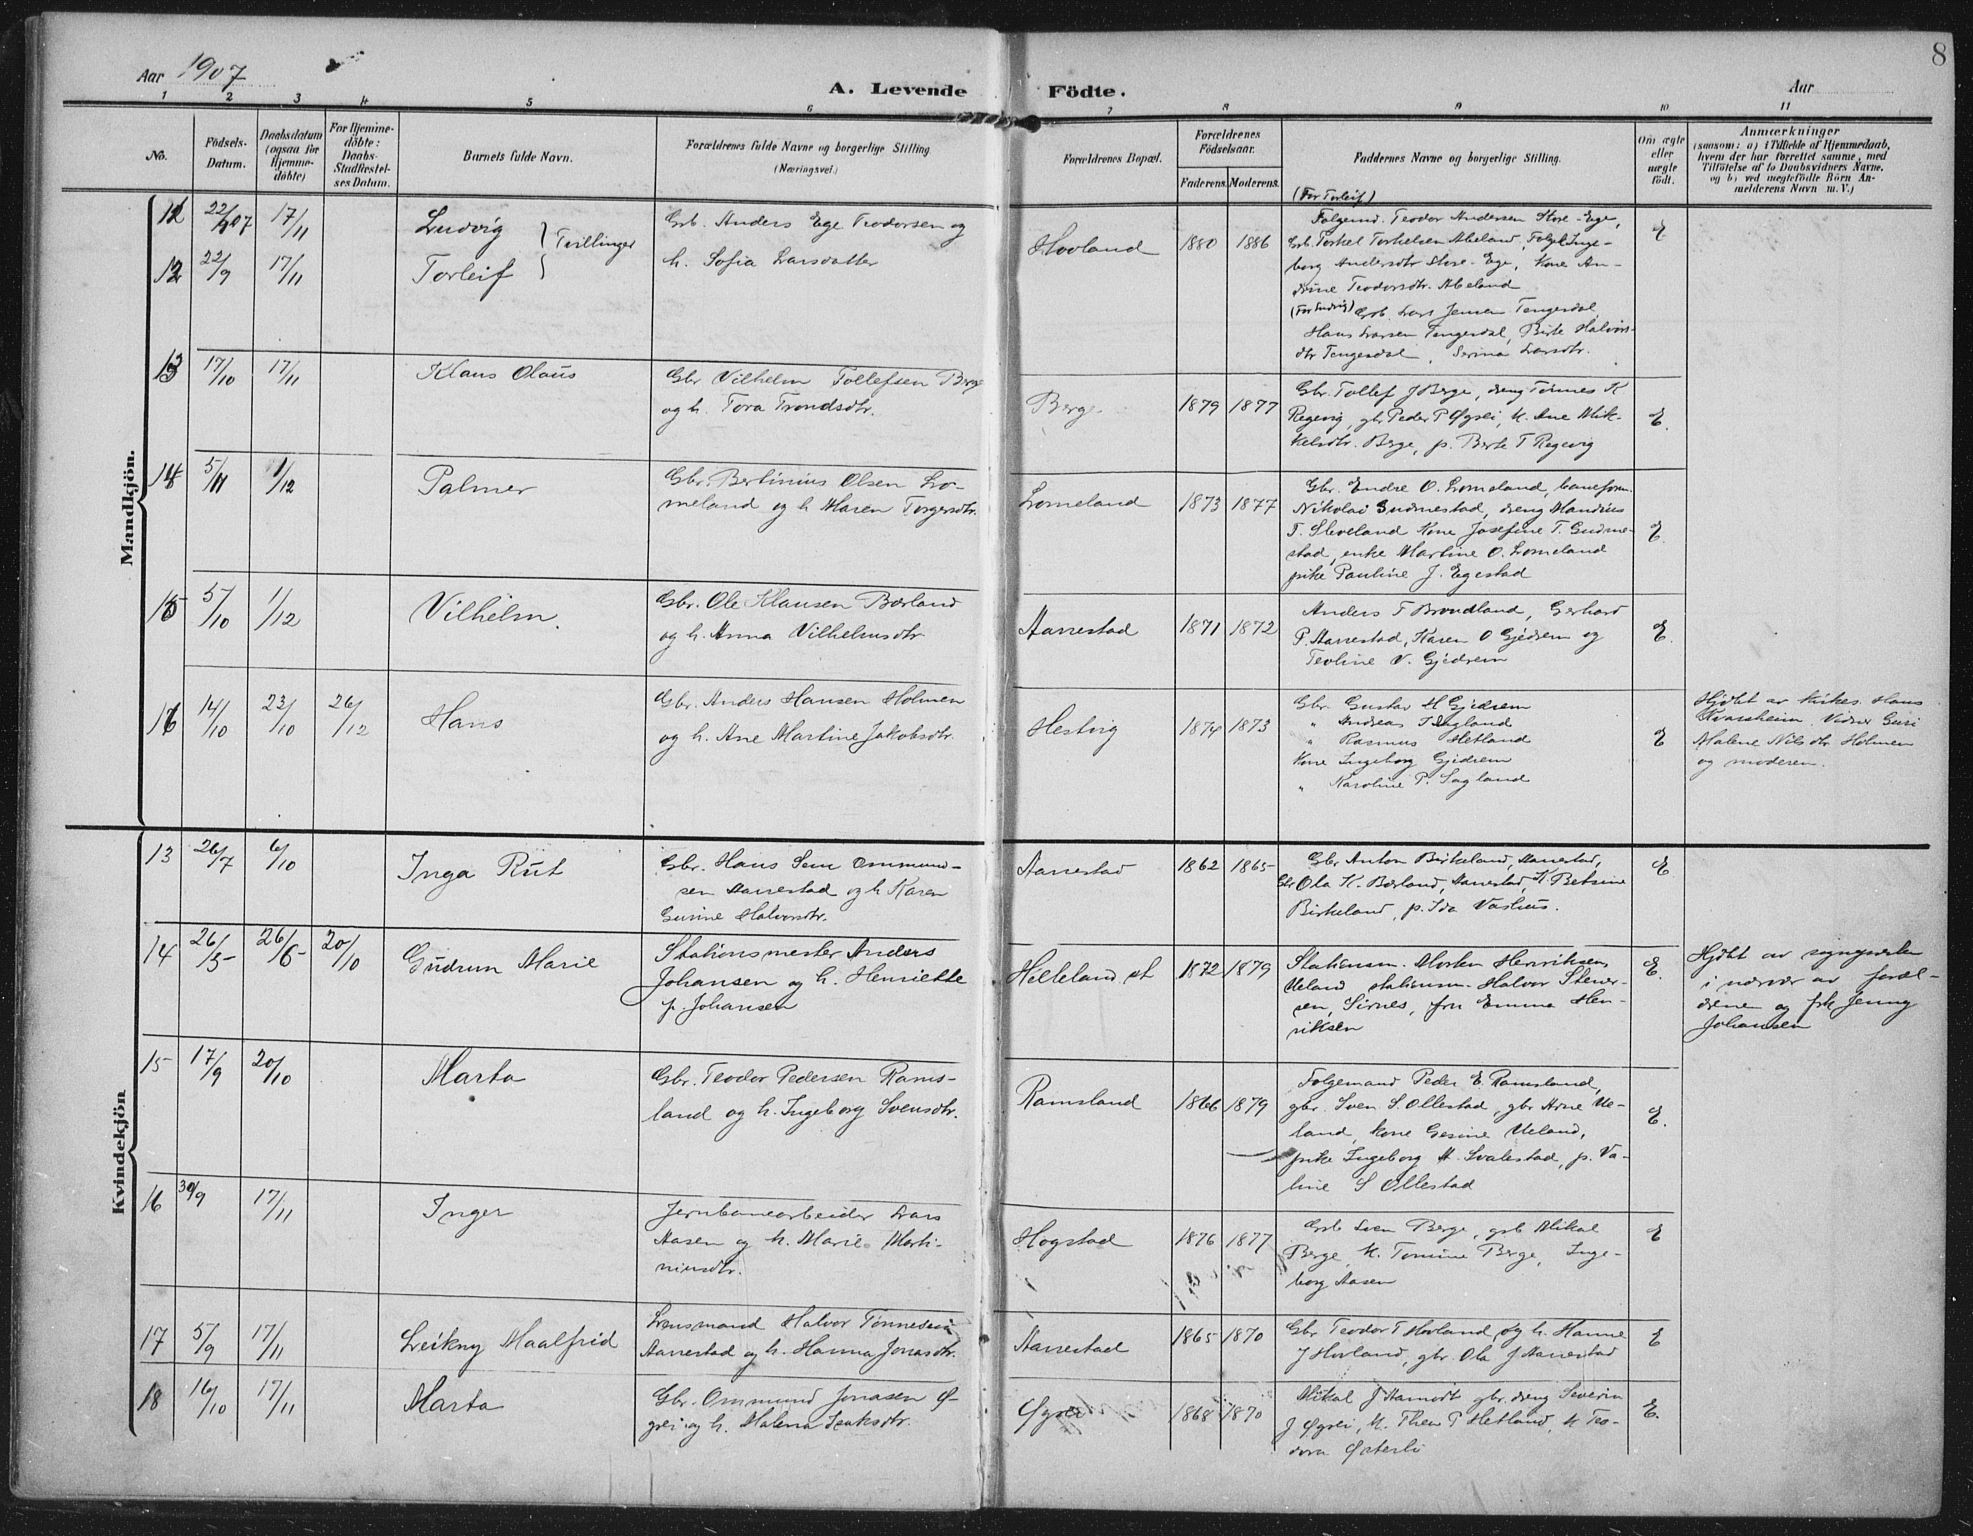 8
Aar 1907
A. Levende Födte.
Aar
1 2 3 4 5 6 7 8 9 10 11
No.
Födsels-Datum.
Daabsdatum (ogsaa for Hjemmedöbte)
For Hjemmedöbte: Daabs-Stadfæstelses Datum.
Barnets fulde Navn.
Forældrenes fulde Navne og borgerlige Stilling (Næringsvei.)
Forældrenes Bopæl.
Forældrenes Födselsaar.
Faderens. Moderens.
Faddernes Navne og borgerlige Stilling.
Om ægte eller uægte födt.
Anmærkninger
(saasom: a) i Tilfælde af Hjemmedaab,
hvem der har forrettet samme, med
Tilföielse af to Daabsvidners Navne.
og b) ved uægtefödte Börn An-
melderens Navn m. V.)
Mandkjön.
22/9 07 17/11 Ludvig
12 22/9 17/11 Torleif
} Tvillinger
Grb. Anders Ege Teodorsen og
h. Sofia Larsdatter
Hovland 1880 1886
(For Torleif)
Folgemd. Teodor Andersen Store-Ege,
Grb. Torkel Torkelsen Abeland, Inge-
borg Andersdtr Store-Ege, Kone An-
drine Teodorsdtr. Abeland
(For Ludvig) Grb. Lars Jensen Tengesdal,
Hans Larsen Tengesdal, Birte Halvors-
dtr Tengesdal, Serina Larsdtr.
E
13 17/10 17/11 Klaus Olaus
Gbr Vilhelm Tollefsen Berge
og h. Tora Trondsdtr.
Berge 1879 1877
Gbr. Tollef J Berge, dreng Tönnes K
Regevig, gbr Peder P Øgrei, K. Ane Mik-
kelsdtr. Berge, p. Berte T Regevig
E.
14 5/11 1/12 Palmer
Gbr. Bertinius Olsen Lo-
meland og h Maren Torgersdtr.
Lomeland 1873 1877
Gbr. Endre O. Lomeland, baneform.
Nikolai Gudmestad, dreng Mandius
T. Sleveland Kone Josefine T. Gudme-
stad, enke Martine O. Lomeland
pike Pauline J. Egestad
E.
15 5/10 1/12 Vilhelm.
Gbr. Ole Klausen Børland
og h. Anna Vilhelmsdtr
Aarrestad 1871 1872
Anders T Brondland, Gerhard
P. Aarrestad, Karen O Gjedrem og
Teoline V. Gjedrem
E.
16 14/10 23/10 26/12 Hans
Gbr. Anders Hansen Holmen
og h. Ane Martine Jakobsdtr.
Hestvig 1874 1873
Gbr. Gustav H Gjedrem
" Andreas Sagland
" Rasmus Hetland
Kone Ingeborg Gjedrem
" Karoline P. Sagland
E
Hjdbt av Kirkes. Hans
Kvassheim. Vidner Guri
Malene Nilsdtr. Holmen
og moderen.
Kvindekjön
13 26/7 6/10 Inga Rut
Gbr. Hans Sem Ommund-
sen Aarrestad og h Karen
Gurine Halvorsdtr.
Aarrestad 1862 1865
Gbr Anton Birkeland, Aarrestad,
Gbr Ola K. Børland, Aarrestad, K. Betsine
Birkeland, p. Ida Vashus.
E
14 26/5 26/6 20/10 Gudrun Marie
Stationsmester Anders
Johansen og h. Henriette
f. Johansen
Helleland st 1872 1879
Stationsm. Morten Henriksen,
Ueland stationsm. Halvor Stener-
sen, Sirnes, fru Emma Hen-
riksen
E.
Hjdbt av sogneprsten
i nærvær av foræl-
drene og frk Jenny
Johansen
15 17/9 20/10 Marta
Gbr. Teodor Pedersen Rams-
land og h. Ingeborg Svensdtr.
Ramsland 1866 1879
Folgemand Peder E. Ramsland,
gbr. Sven S. Ollestad, gbr Arne Ue-
land, kone Gesine Ueland,
pike Ingeborg H. Svalestad, p. Va-
line S Ollestad
E.
16 30/9 17/11 Inger
Jernbanearbeider Lars
Aasen og h. Marie Marti-
niusdtr.
Hogstad 1876 1877
Grb Sven Berge, grb Mikal
Berge, K. Tomine Berge, Inge-
borg Aasen
E
17 5/9 17/11 Leikny Maalfrid
Lensmand Halvor Tönnesen
Aarrestad og h. Hanna Jonasdtr.
Aarrestad 1865 1870
Gbr Teodor T Hovland og h. Hanne
J Hovland, gbr. Ola J Aarrestad
E
18 16/10 17/11 Marta
Gbr. Ommund Jonasen Ø-
grei og h. Malena Isaksdtr.
Øgrei 1868 1870
Mikal J Hamodt gbr. dreng Severin
J Øgrei, K. Thea P Hetland, K Teo-
dora Østerli
E.